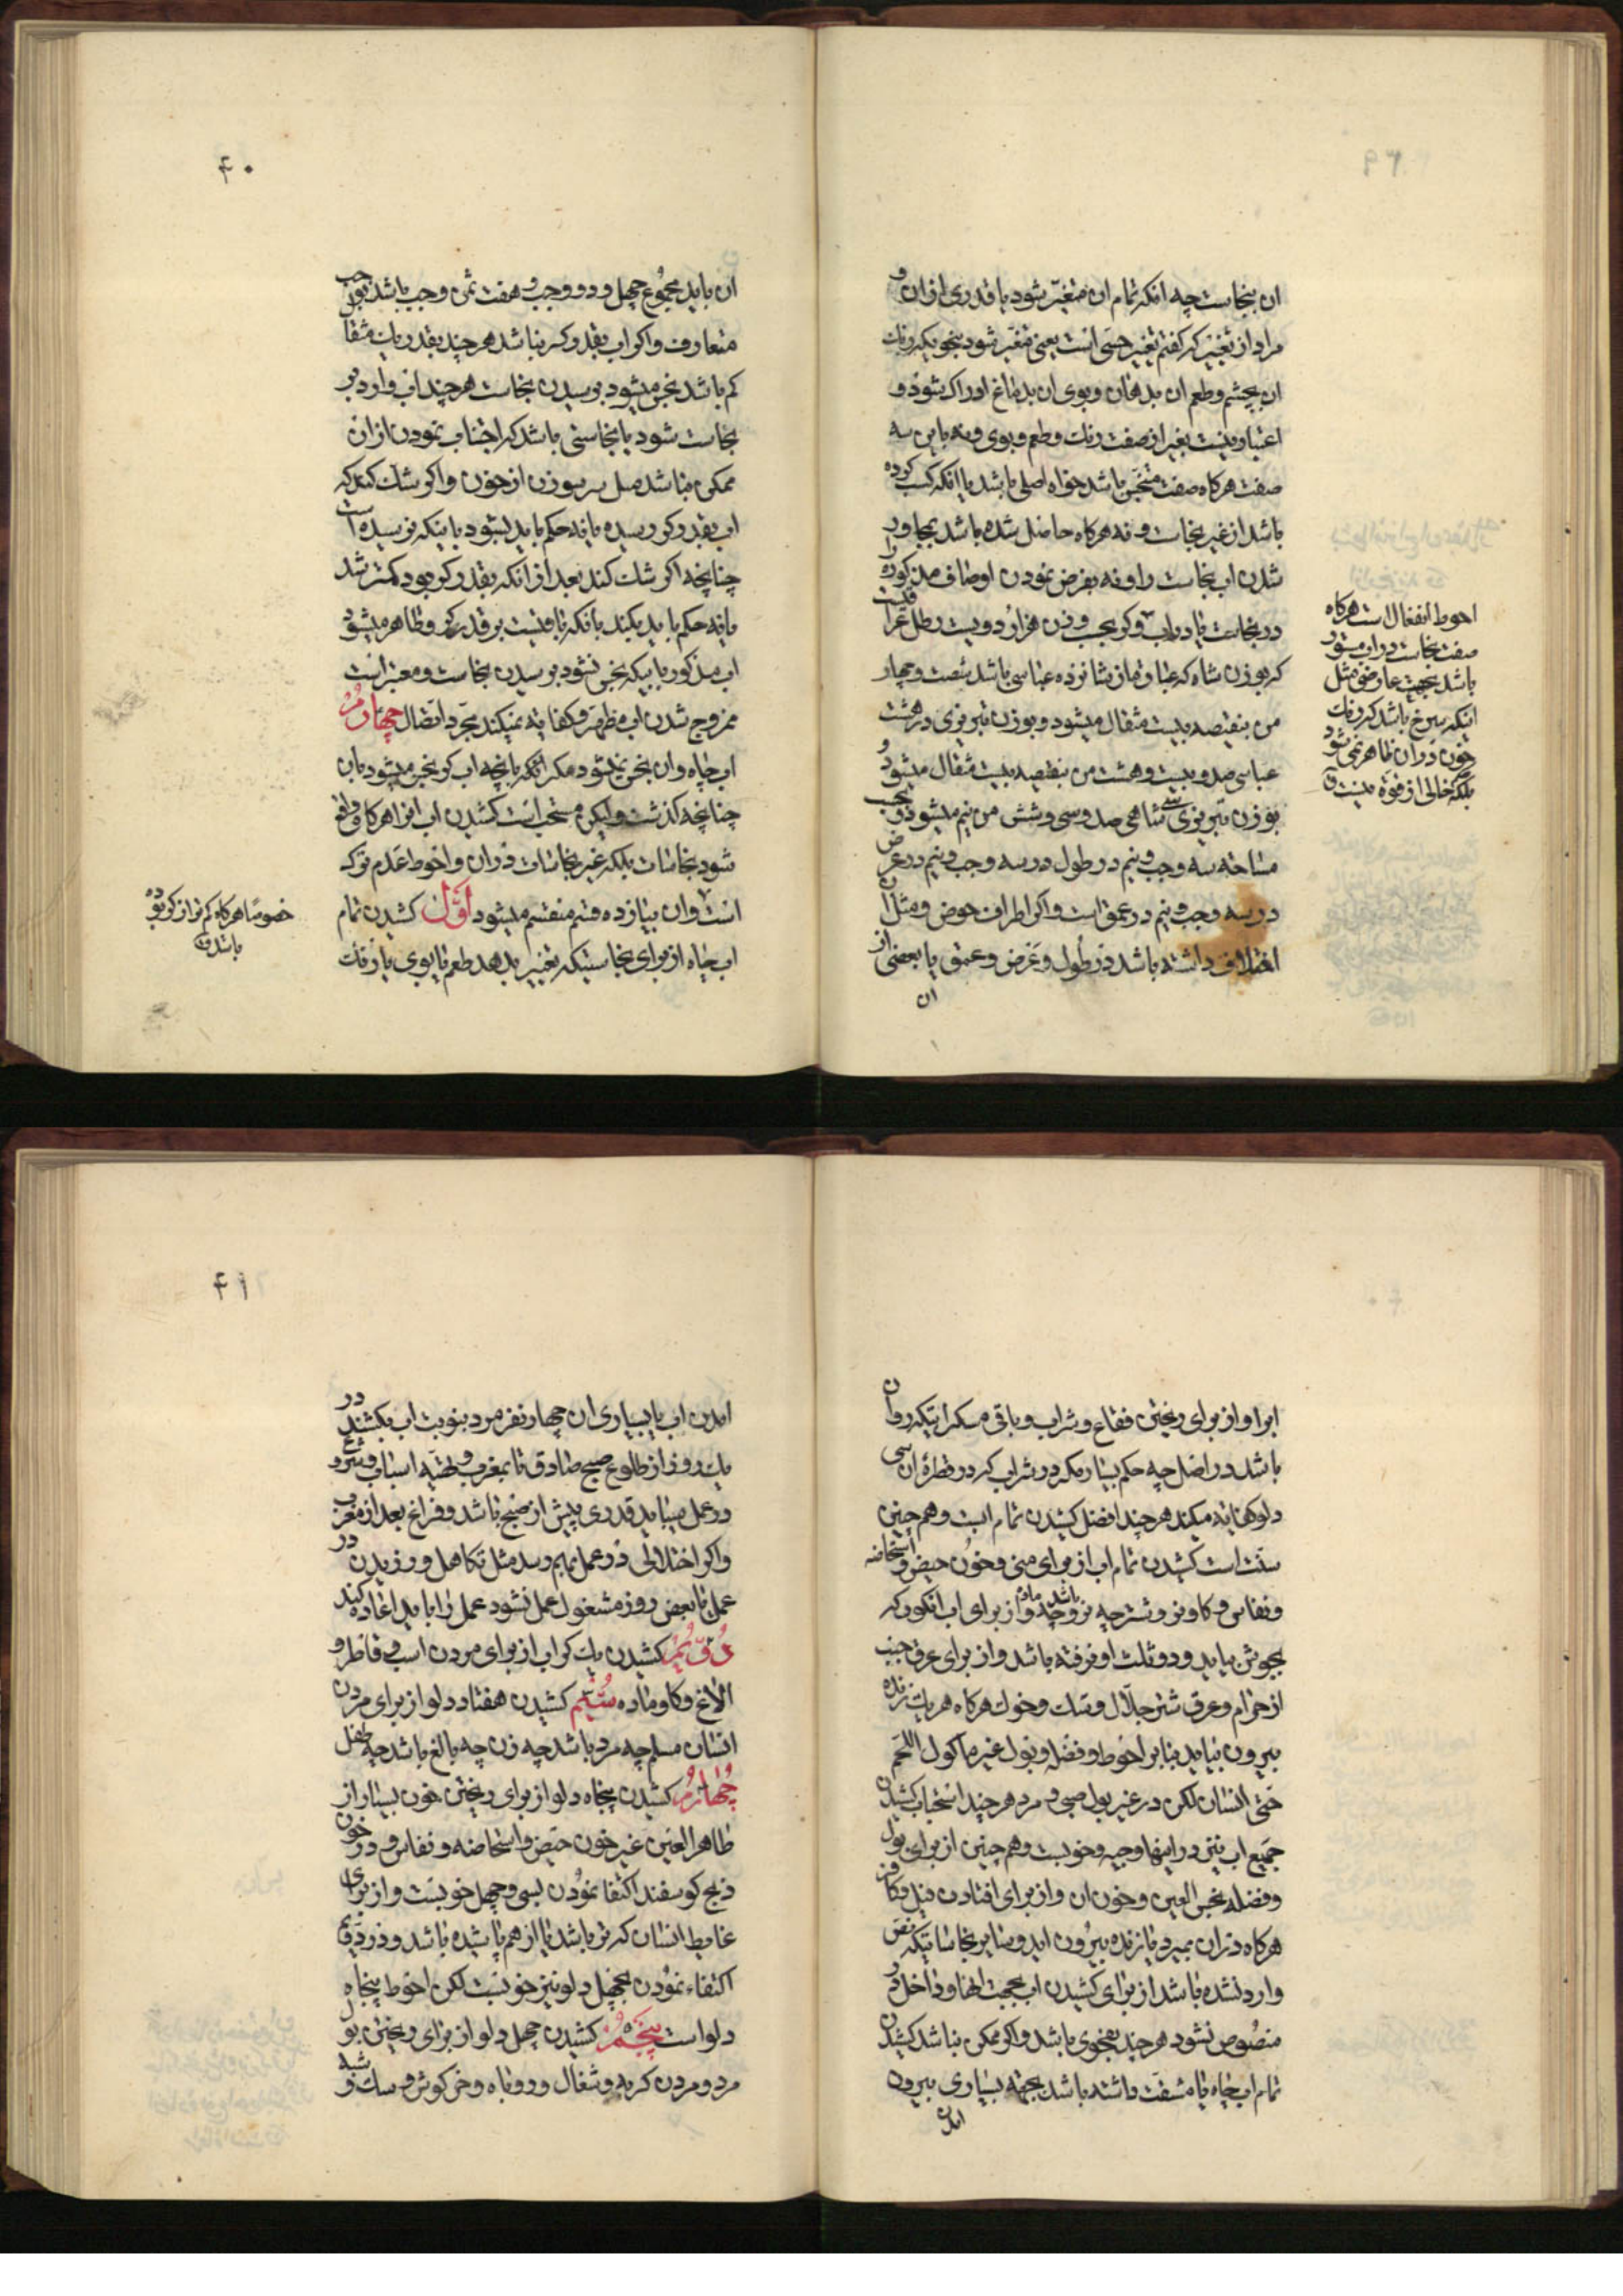 ان بنجاست چه انکه تمام ان متغیر شود یا قدری از ان و
مراد از تغییر که کفتم تغییر حسی است یعنی متغیر شود بنحویکه رنك
ان بچشم و طعم ان بدهان و بوی ان بدماغ ادراك شود و
اعتبار نیست بغیر از صفت رنك و طعم و بوی و نه باین سه
صفت هرکاه صفت متنجس باشد خواه اصلی باشد یا انکه کسب کرده
باشد از غیر نجاست و نه هرکاه حاصل شده باشد بمجاور
شدن اب نجاست را و نه بفرض نمودن اوصاف مذکوره را
در نجاست یا در اب و کر بحسب وزن هزار و دویست رطل عراقیست
که بوزن شاه که عبارة از شانزده عباسی باشد شصت و چهار
من بنقیصه بیست مثقال میشود و بوزن تبریزی در هشت
عباسی صد و بیست و هشت من بنقیصه بیست مثقال میشود و
بوزن تبریزی سه شاهی صد و سی و شش من نیم میشود و بحسب
مساحة سه وجب و نیم در طول در سه وجب و نیم در عرض
در سه وجب و نیم در عمق است و اکر اطراف حوض و مثل ان
اختلاف داشته باشد در طول و عرض و عمق یا بعضی از
ان
احوط انفعال است هرکاه
صفت نجاست در ان مستور
باشد بجهت عارضی مثل
اینکه سرخ باشد که رنك
خون در ان ظاهر نمی شود
بلکه خالی از قوة نیست
۴۰
ان باید مجموع چهل و دو وجب و هفت ثمن وجب باشد بوجب
متعارف و اکر اب بقدر کر نباشد هر چند بقدر یك مثقا
کم باشد نجس میشود برسیدن نجاست هر چند اب وارد بر
نجاست شود یا نجاستی باشد که اجتناب نمودن از ان
ممکن نباشد مثل سر سوزن از خون و اکر شك کند که
اب بقدر کر رسیده یا نه حکم باید بشود باینکه نرسیده است
چنانچه اکر شك کند بعد از انکه بقدر کر بود کمتر شد
یا نه حکم باید بکند بانکه باقیست بر قدر کر و ظاهر میشود
اب مذکور باینکه نجس نشود برسیدن نجاست و معتبر است
ممزوج شدن اب مطهر و کفایة نمیکند مجرد اتصال چهارم
اب چاه و ان نجس نمیشود مکر انکه بانچه اب کر نجس میشود بان
چنانچه کذشت و لیکن مستحب است کشیدن اب انرا هرکاه واقع
شود نجاسات بلکه غیر نجاسات در ان و احوط عدم ترك
است و ان بیازده قسم منقسم میشود اول کشیدن تمام
اب چاه از برای نجاستیکه تغییر بدهد طعم یا بوی یا رنك
خصوصا هرکاه کم تر از کر بوده
باشد
ابرا و از برای ریختن فقاع و شراب و باقی مسکراتیکه روان
باشد در اصل چه حکم بسیار مکر در شراب که در قطرهٔ ان سی
دلو کفایة میکند هر چند افضل کشیدن تمام است و هم چنین
سنت است کشیدن تمام اب از برای منی و خون حیض و استحاضه
و نفاس و کاو نر و شتر چه نر باشد و چه ماده و از برای اب انکور که
بجوش بیاید و دو ثلث او نرفته باشد و از برای عرق جنب
از حرام و عرق شتر جلال و سك و خوك هرکاه هر یك زنده
بیرون بیاید بنابر احوط و فضله و بول غیر ماکول اللحم
حتی انسان لکن در غیر بول صبی و مرد هر چند استحباب کشیدن
جمیع اب نیز در اینها وجیه و خوبست و هم چنین از برای بول
و فضله نجس العین و خون ان و از برای افتادن فیل و کافر
هرکاه در ان بمیرد یا زنده بیرون اید و سایر نجاساتیکه نص
وارد نشده باشد از برای کشیدن اب بجهت انها و داخل در
منصوص نشود هر چند بفحوی باشد و اکر ممکن نباشد کشیدن
تمام اب چاه یا مشقت داشته باشد بجهة بسیاری بیرون
امدن
۴۱
امدن اب یا بسیاری ان چهار نفر مرد بنوبت اب بکشند در
یك روز از طلوع صبح صادق تا بمغرب و تهیه اسباب و شروع
در عمل میباید قدری پیش از صبح باشد و فراغ بعد از مغرب
و اکر اختلالی در عمل بهم رسد مثل تکاهل ورزیدن در
عمل یا بعض روز مشغول عمل نشود عمل را باید اعاده کند
دویم کشیدن یك کر اب از برای مردن اسب و قاطر و
الاغ و کاو ماده سیم کشیدن هفتاد دلو از برای مردن
انسان مسلم چه مرد باشد چه زن چه بالغ باشد چه طفل
چهارم کشیدن پنجاه دلو از برای ریختن خون بسیار از
طاهر العین غیر خون حیض و استحاضه و نفاس و در خون
ذبح کوسفند اکتفا نمودن بسی و چهل خوبست و از برای
غایط انسان که تر باشد یا از هم پاشیده باشد و در دویم
اکتفاء نمودن بچهل دلو نیز خوبست لکن احوط پنجاه
دلو است پنجم کشیدن چهل دلو از برای ریختن بول
مرد و مردن کربه و شغال و روباه و خرکوش و سك و شبه